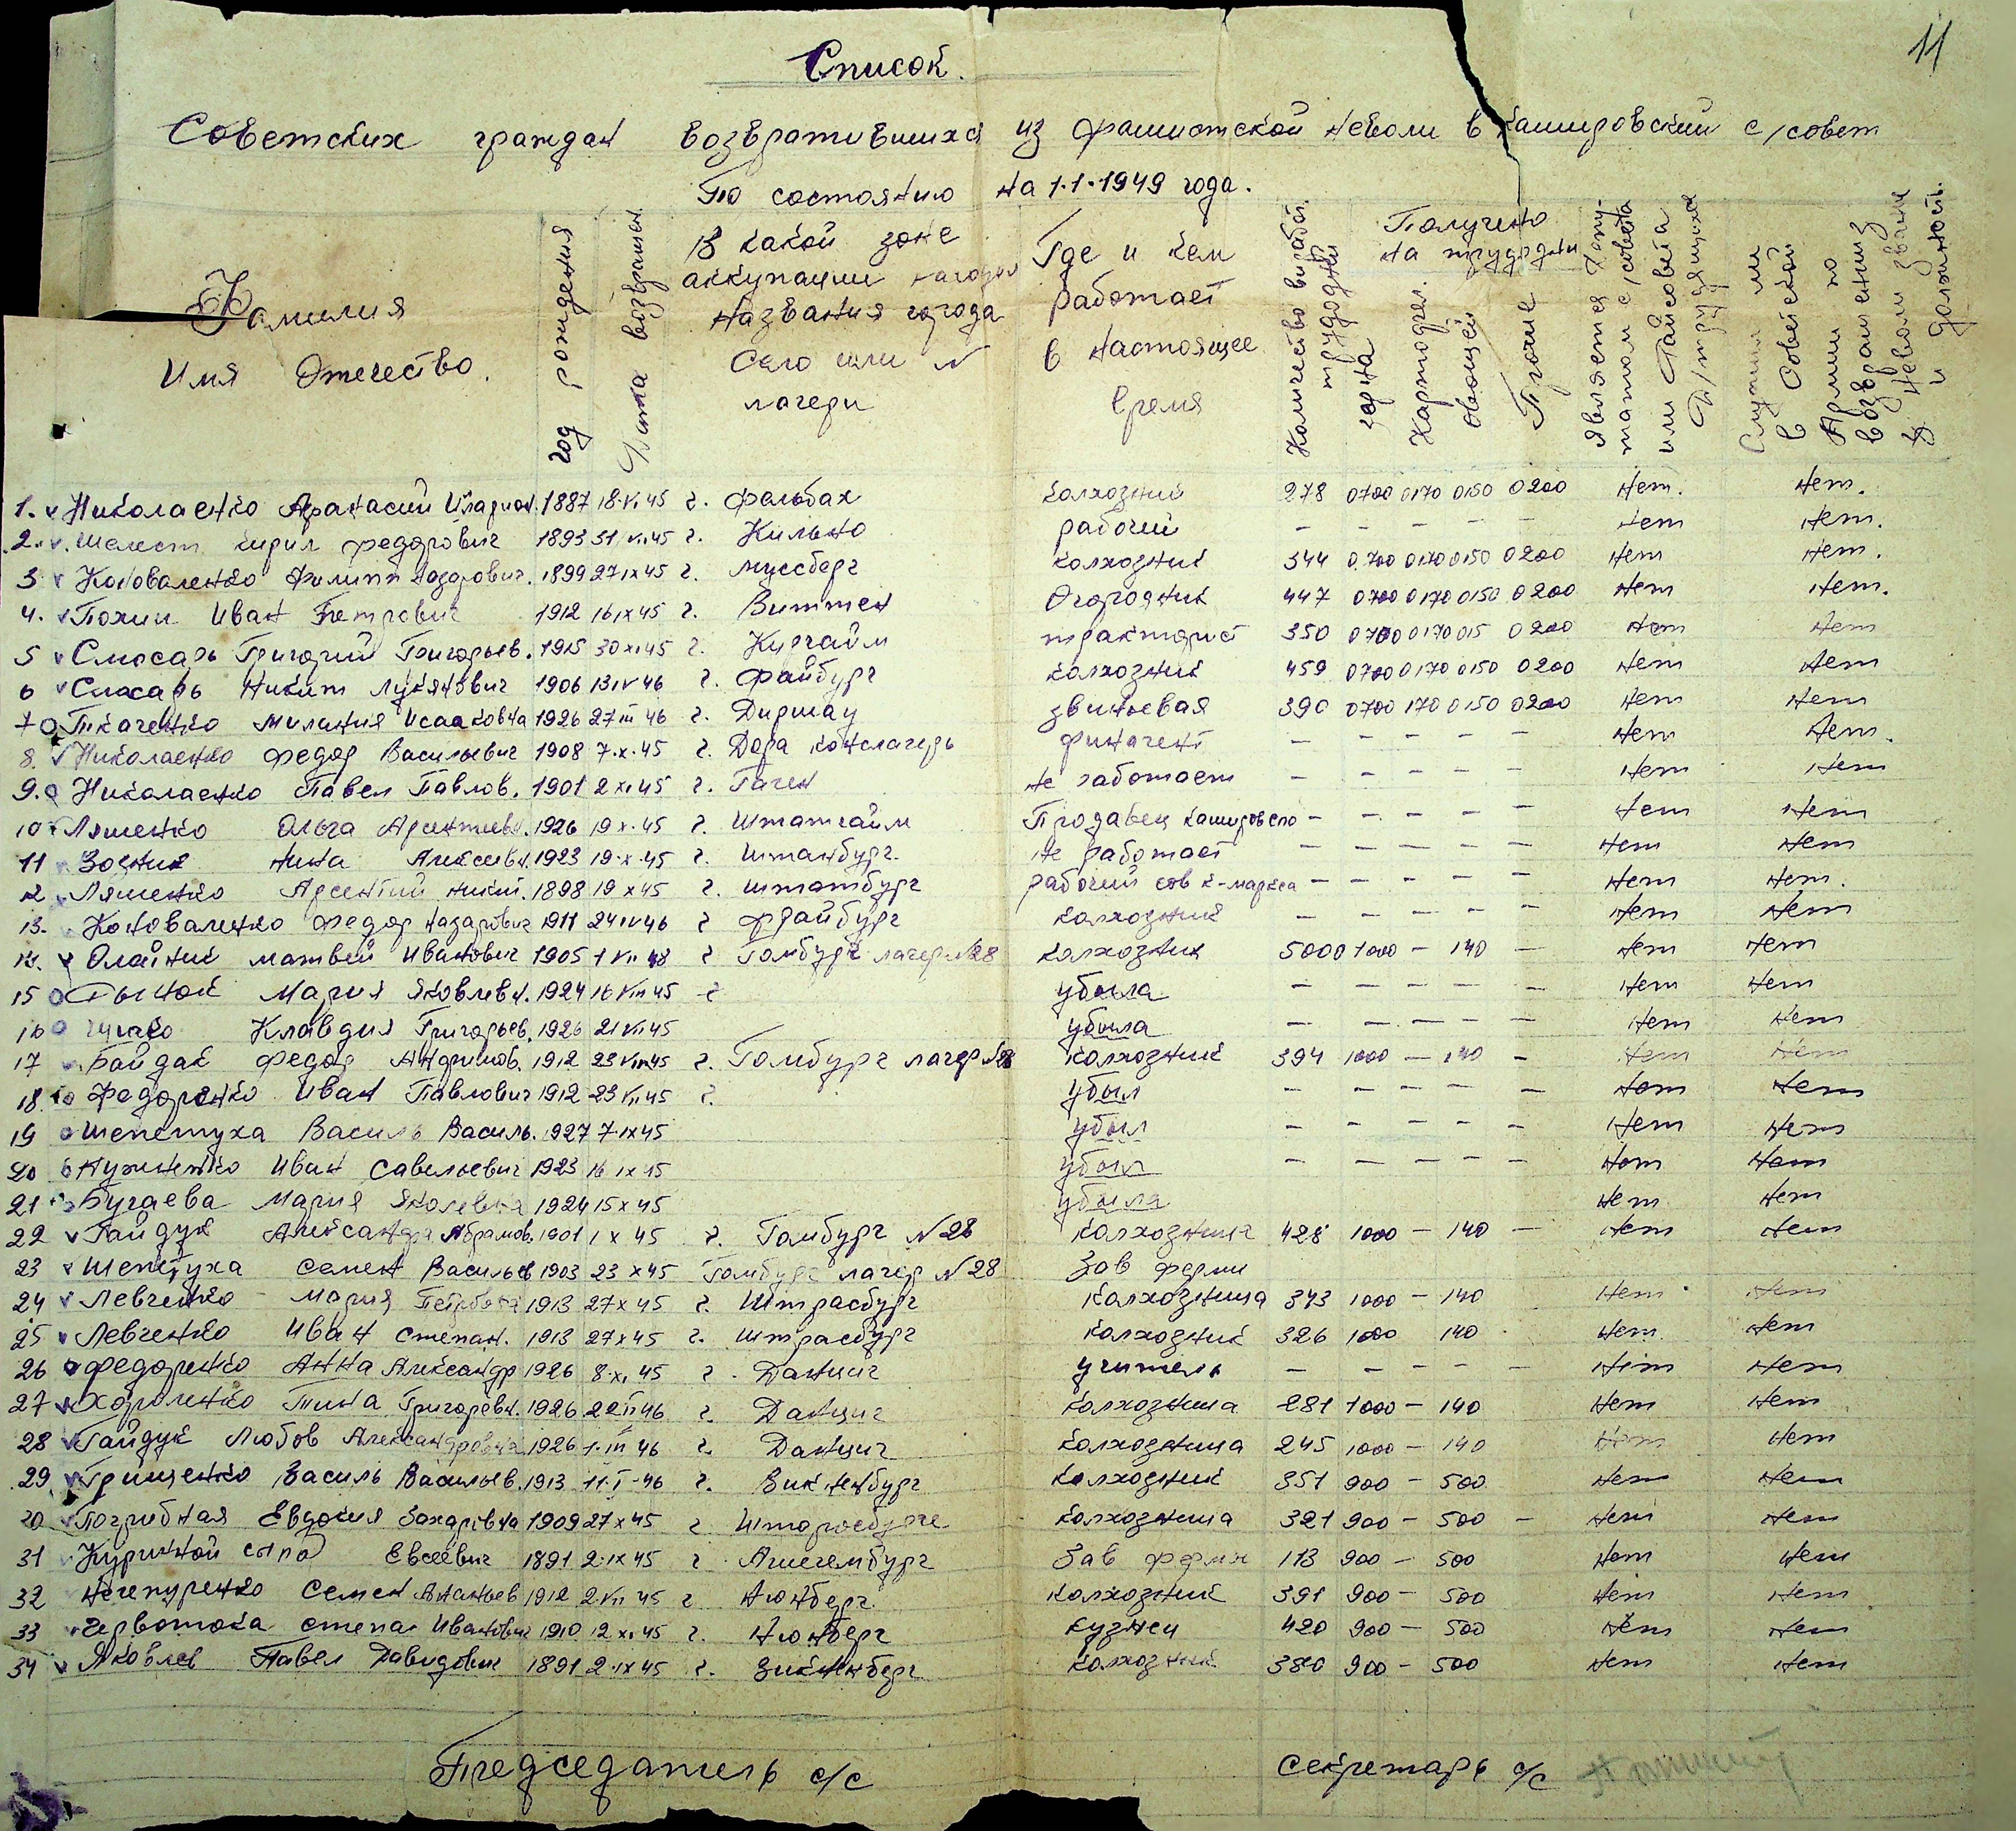 11
Список.
Советских граждан возвратившихся из фашистской неволи в Кашировский с/совет
По состоянию на 1.1.1949 года.
Фамилия Имя Отчество.
год рождения
возвращен.
В какой зоне аккупации находил названия города Село или № лагеря
Где и кем работает в настоящее время
Количество выработ. трудодней
Получено на трудодни
зерна
Картофел. овощей
Прочие
Является депутатом с/совета или Райсовета Д/трудящихся
Служил ли в Советской Армии по возвращению з неволи звание и должность.
1. v Николаенко Афанасий Иларион. 1887 18.VI 45 г. Фельбах колхозник 278 0700 0170 0150 0200 нет. нет.
2. v. Шелест Кирил Федорович 1893 31/VII.45 г. Кильно рабочий – – – – – нет нет.
3 v Коноваленко Филипп Назарович. 1899 27 IX 45 г. Муссберг колхозник 344 0.700 0170 0150 0200 нет нет.
4. v Похил Иван Петрович 1912 16 IX 45 г. Виттен Огородник 447 0700 0170 0150 0200 нет нет.
5 v Слюсарь Григорий Григорьев. 1915 30 XI 45 г. Кирхайм тракторист 350 0700 0170 015 0200 нет нет
6 v Слюсарь Никит Лукянович 1906 13 IV 46 г. Файбург колхозник 459 0700 0170 0150 0200 нет нет
7 о Ткаченко Милания Исааковна 1926 27 III 46 г. Диршау звеньевая 390 0700 170 0150 0200 нет нет
8. v Николаенко Федор Васильевич 1908 7.X.45 г. Дора концлагерь финагент – – – – – нет нет.
9. о Николаенко Павел Павлов. 1901 2 XI 45 г. Гаген не работает – – – – – нет нет
10 v Ляшенко Ольга Арсентиевн. 1926 19 X.45 г. Штатгайм Продавец Кашировсело – – – – – нет нет
11 Зозник Нина Алексеевн. 1923 19.X.45 г. Штанбург. не работает – – – – – нет нет
12 Ляшенко Арсентий Никит. 1898 19 X 45 г. Штатбург рабочий сов К-маркса – – – – – нет нет.
13. Коноваленко Федор Назарович 1911 24 IV 46 г Фрайбург колхозник – – – – – нет нет
14. v Олайник Матвей Иванович 1905 1 VII 48 г Гомбург лагер №28 колхозник 500 01000 – 140 – нет нет
15 о Мария Яковлевн. 1924 16 VIII 45 г убыла – – – – – нет нет
16 о Клавдия Григорьев. 1926 21 VII 45 убыла – – – – – нет нет
17 v Байдак Федор Андриков. 1912 23 VIII 45 г. Гомбург лагер №28 колхозник 394 1000 – 140 – нет нет
18. о Федоренко Иван Павлович 1912 23 VII 45 г. убыл – – – – – нет нет
19 о Шепетуха Василь Василь. 1927 7.IX 45 убыл – – – – – нет нет
20 о Нужненко Иван Савельевич 1923 16 IX 45 убыл – – – – – нет нет
21 о Бугаева Мария Яколевна 1924 15 X 45 убыла нет нет
22 v Гайдук Александра Абрамов. 1901 1 X 45 г. Гомбург №28 колхозница 428 1000 – 140 – нет нет
23 v Шепетуха Семен Васильев 1903 23 X 45 Гомбург лагер №28 Зав ферми
24 v Левченко Мария Петровна 1913 27 X 45 г. Штрасбург колхозница 343 1000 – 140 нет нет
25 v Левченко Иван Степан. 1913 27 X 45 г. Штрасбург колхозник 326 1000 140 нет нет
26 о Федоренко Анна Александр 1926 8.XI.45 г. Данциг учитель – – – – – нет нет
27 v Хороленко Тина Григоревн. 1926 22 II 46 г. Данциг колхозница 281 1000 – 140 нет нет
28 v Гайдук Любов Александровна 1926 1.III 46 г. Данциг колхозница 245 1000 – 140 нет нет
29. v Грищенко Василь Васильев. 1913 11.I-46 г. Викненбург колхозник 351 900 – 500 нет нет
30 v Погрибная Евдокия Захаровна 1909 27 X 45 г колхозница 321 900 – 500 – нет нет
31 Куринной Евсеевич 1891 2.IX 45 г Ашегембург Зав ферми 113 900 – 500 нет нет
32 Нечепуренко Семен Ананьев 1912 2.VII 45 г Нюнберг. колхозник 391 900 – 500 нет нет
33 v Червотока Степан Иванович 1910 12 XI.45 г. Нюнберг кузнец 420 900 – 500 нет нет
34 v Яковлев Павел Давидович 1891 2.IX 45 г. Зикненберг колхозник 380 900 – 500 нет нет
Председатель с/с Секретарь с/с